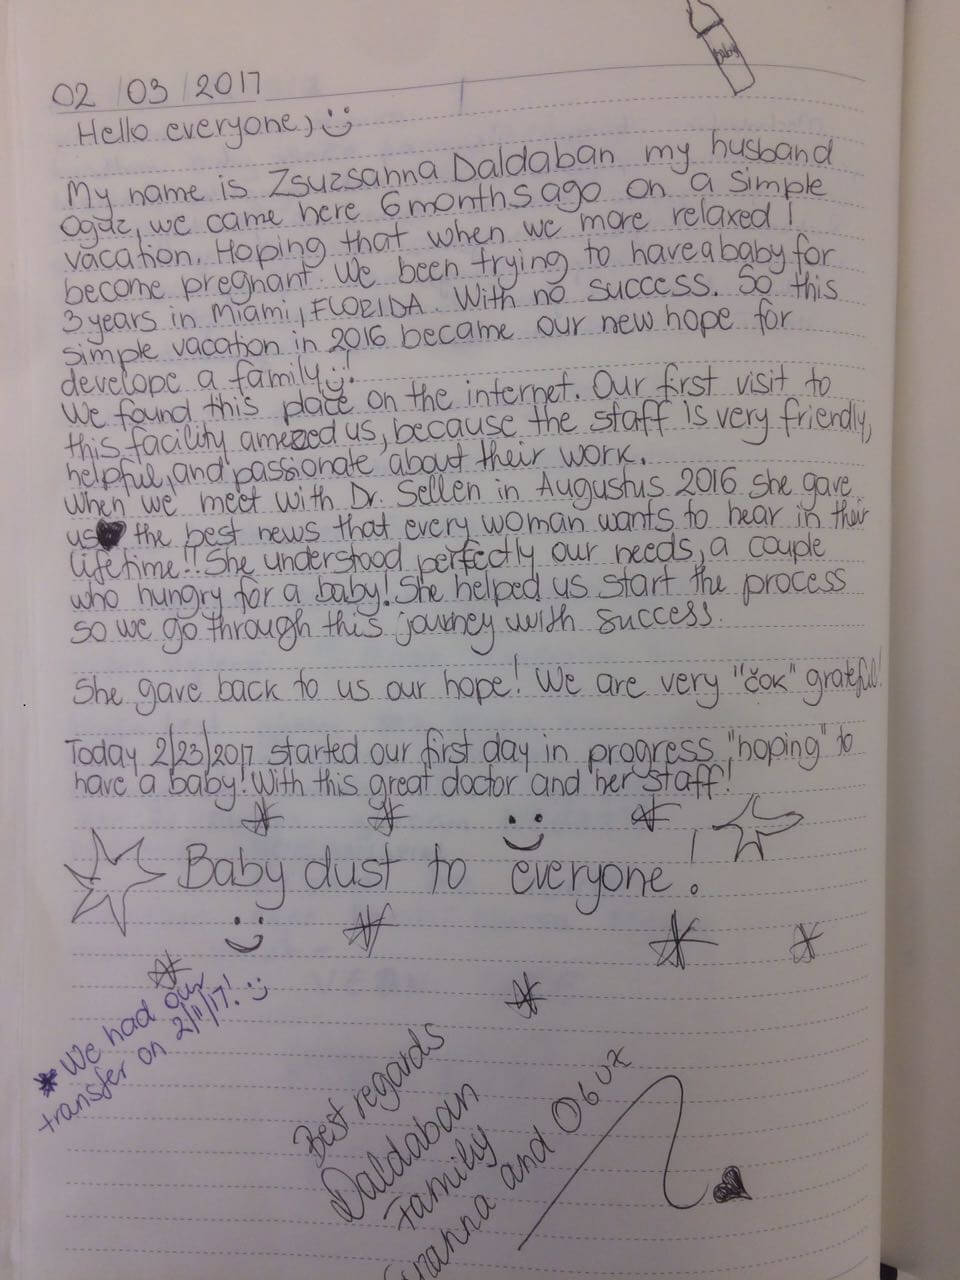 baby
02/03/2017
Hello everyone,
My name is Zsuzsanna Daldaban my husband
Oguz, we came here 6 months ago on a simple
vacation. Hoping that when we more relaxed!
become pregnant. We been trying to have a baby for
3 years in Miami, FLORIDA. With no success. So this
simple vacation in 2016 became our new hope for
develope a family!
We found this place on the internet. Our first visit to
this facility amezed us, because the staff is very friendly,
helpful, and passionate about their work.
When we meet with Dr. Sellen in Augustus 2016 she gave
us the best news that every woman wants to hear in their
lifetime!! She understood perfectly our needs, a couple
who hungry for a baby! She helped us start the process
so we go through this journey with success.
She gave back to us our hope! We are very "čok" grateful!
Today 2/23/2017 started our first day in progress "hoping" to
have a baby! With this great doctor and her staff!
Baby dust to everyone!
* We had our
transfer on 2/11/17!
Best regards
Daldaban
Family
and Oguz